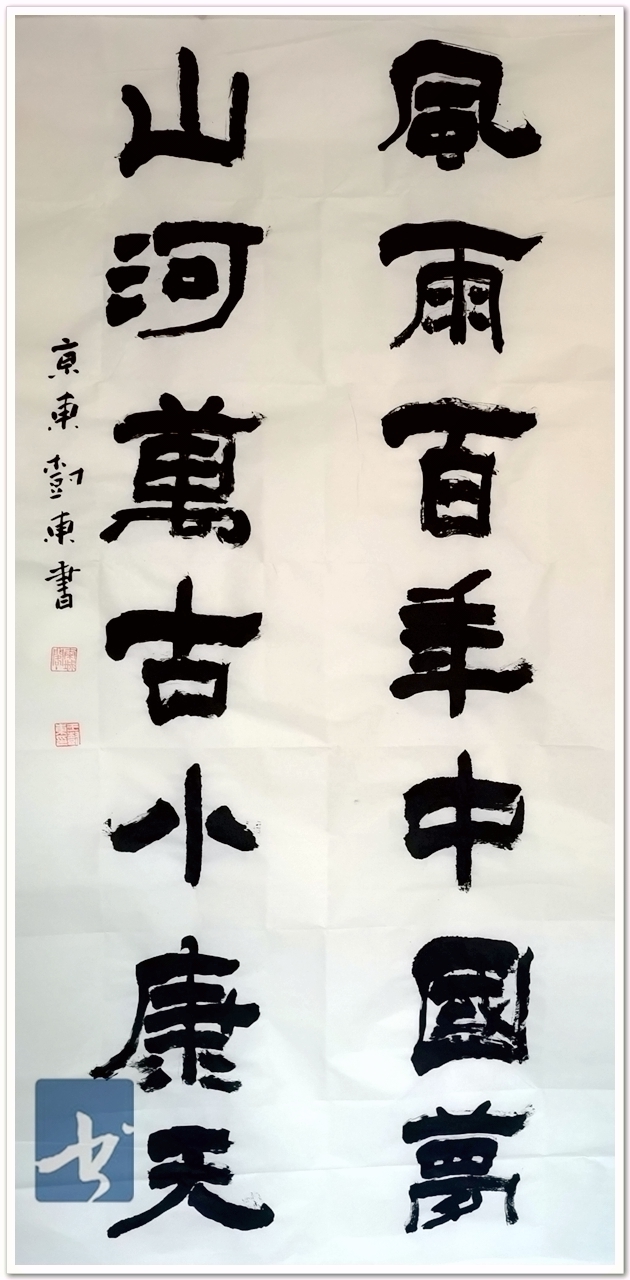 風雨百年中國夢
山河萬古小康天
京東東書
书